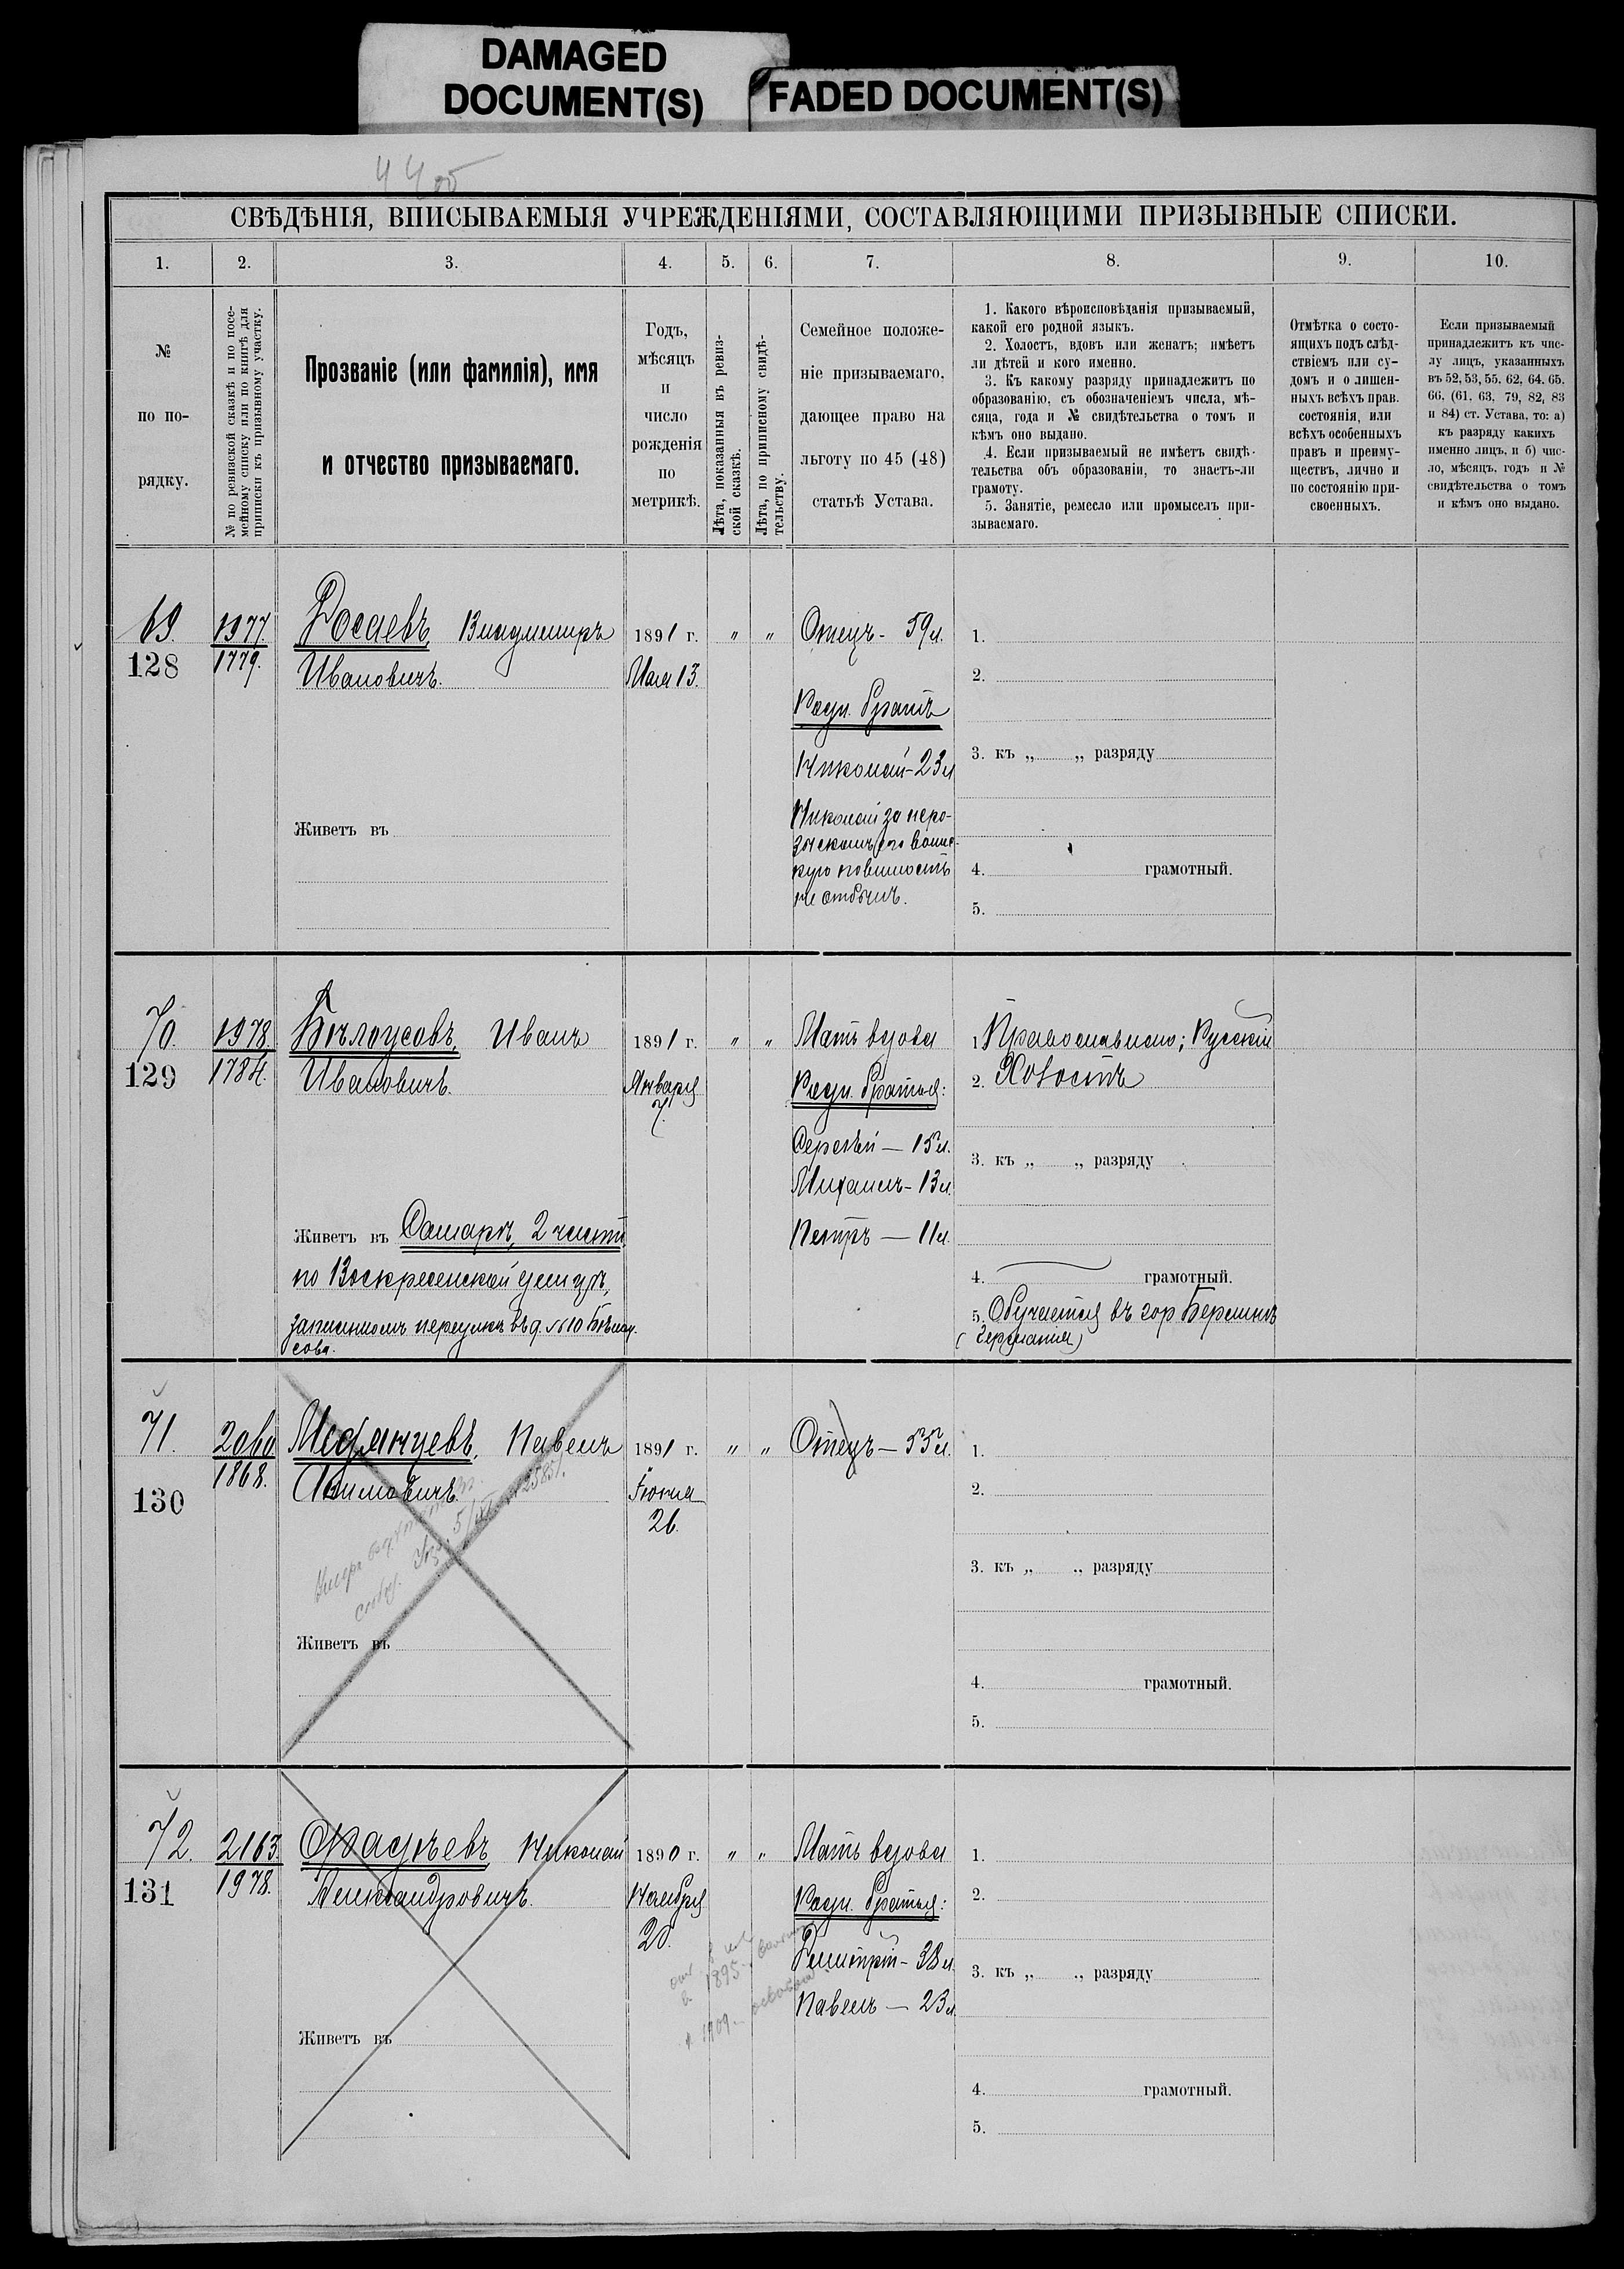 DAMAGED
DOCUMENT(S)
FADED DOCUMENT(S)
44 об
СВѢДѢНІЯ, ВПИСЫВАЕМЫЯ УЧРЕЖДЕНІЯМИ, СОСТАВЛЯЮЩИМИ ПРИЗЫВНЫЕ СПИСКИ.
1. 2. 3. 4. 5. 6. 7. 8. 9. 10.
№
по по-
рядку.
№ по ревизской сказкѣ и по посе-
мейному списку или по книгѣ для
приписки къ призывному участку.
Прозваніе (или фамилія), имя
и отчество призываемаго.
Годъ,
мѣсяцъ
и
число
рожденія
по
метрикѣ.
Лѣта, показанныя въ ревиз-
ской сказкѣ.
Лѣта, по приписному свидѣ-
тельству.
Семейное положе-
ніе призываемаго,
дающее право на
льготу по 45 (48)
статьѣ Устава.
1. Какого вѣроисповѣданія призываемый,
какой его родной языкъ.
2. Холостъ, вдовъ или женатъ; имѣетъ
ли дѣтей и кого именно.
3. Къ какому разряду принадлежитъ по
образованію, съ обозначеніемъ числа, мѣ-
сяца, года и № свидѣтельства о томъ и
кѣмъ оно выдано.
4. Если призываемый не имѣетъ свидѣ-
тельства объ образованіи, то знаетъ-ли
грамоту.
5. Занятіе, ремесло или промыселъ при-
зываемаго.
Отмѣтка о состо-
ящихъ подъ слѣд-
ствіемъ или су-
домъ и о лишен-
ныхъ всѣхъ прав.
состоянія, или
всѣхъ особенныхъ
правъ и преиму-
ществъ, лично и
по состоянію при-
своенныхъ.
Если призываемый
принадлежитъ къ чис-
лу лицъ, указанныхъ
въ 52, 53, 55, 62, 64, 65,
66, (61, 63, 79, 82, 83
и 84) ст. Устава, то: а)
къ разряду какихъ
именно лицъ, и б) чис-
ло, мѣсяцъ, годъ и №
свидѣтельства о томъ
и кѣмъ оно выдано.
69.
128
1977.
1779.
Владимиръ
Ивановичъ.
Живетъ въ
1891 г.
Мая 13.
" "
Отецъ - 59 л.
Родн. братъ
Николай - 23 л
Николай за неро-
зыскомъ его воинс-
кую повинность
не отбылъ.
1.
2.
3. къ „ „ разряду
4. грамотный.
5.
70.
129
1978.
1784.
Бѣлоусовъ, Иванъ
Ивановичъ.
Живетъ въ Самарѣ, 2 части,
по Воскресенской улицѣ,
переулка въ д. №10 Бѣлоу-
сова.
1891 г.
Января
7.
" "
Мать вдова
Родн. братья:
Сергѣй — 15 л.
Михаилъ - 13 л.
Петръ — 11 л.
1. Православный; Русскій
2. Холостъ
3. къ „ „ разряду
4. грамотный.
5. Обучается въ гор Берлинѣ
(Германія)
71.
130
2060
1868.
Медянцевъ, Павелъ
Акимовичъ.
Живетъ въ
1891 г.
Іюня
26.
" "
Отецъ — 55 л.
1.
2.
3. къ „ „ разряду
4. грамотный.
5.
72.
131
2163.
1978.
Фадѣевъ Николай
Александровичъ.
Живетъ въ
1890 г.
Ноября
20.
" "
Мать вдова
Родн. братья:
Димитрій - 38 л.
Павелъ — 23 л.
1895
1909
1.
2.
3. къ „ „ разряду
4. грамотный.
5.